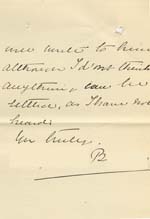 write to him
although I do not think
anything can be
settled, as I have not
heard.
Yrs truly,
B